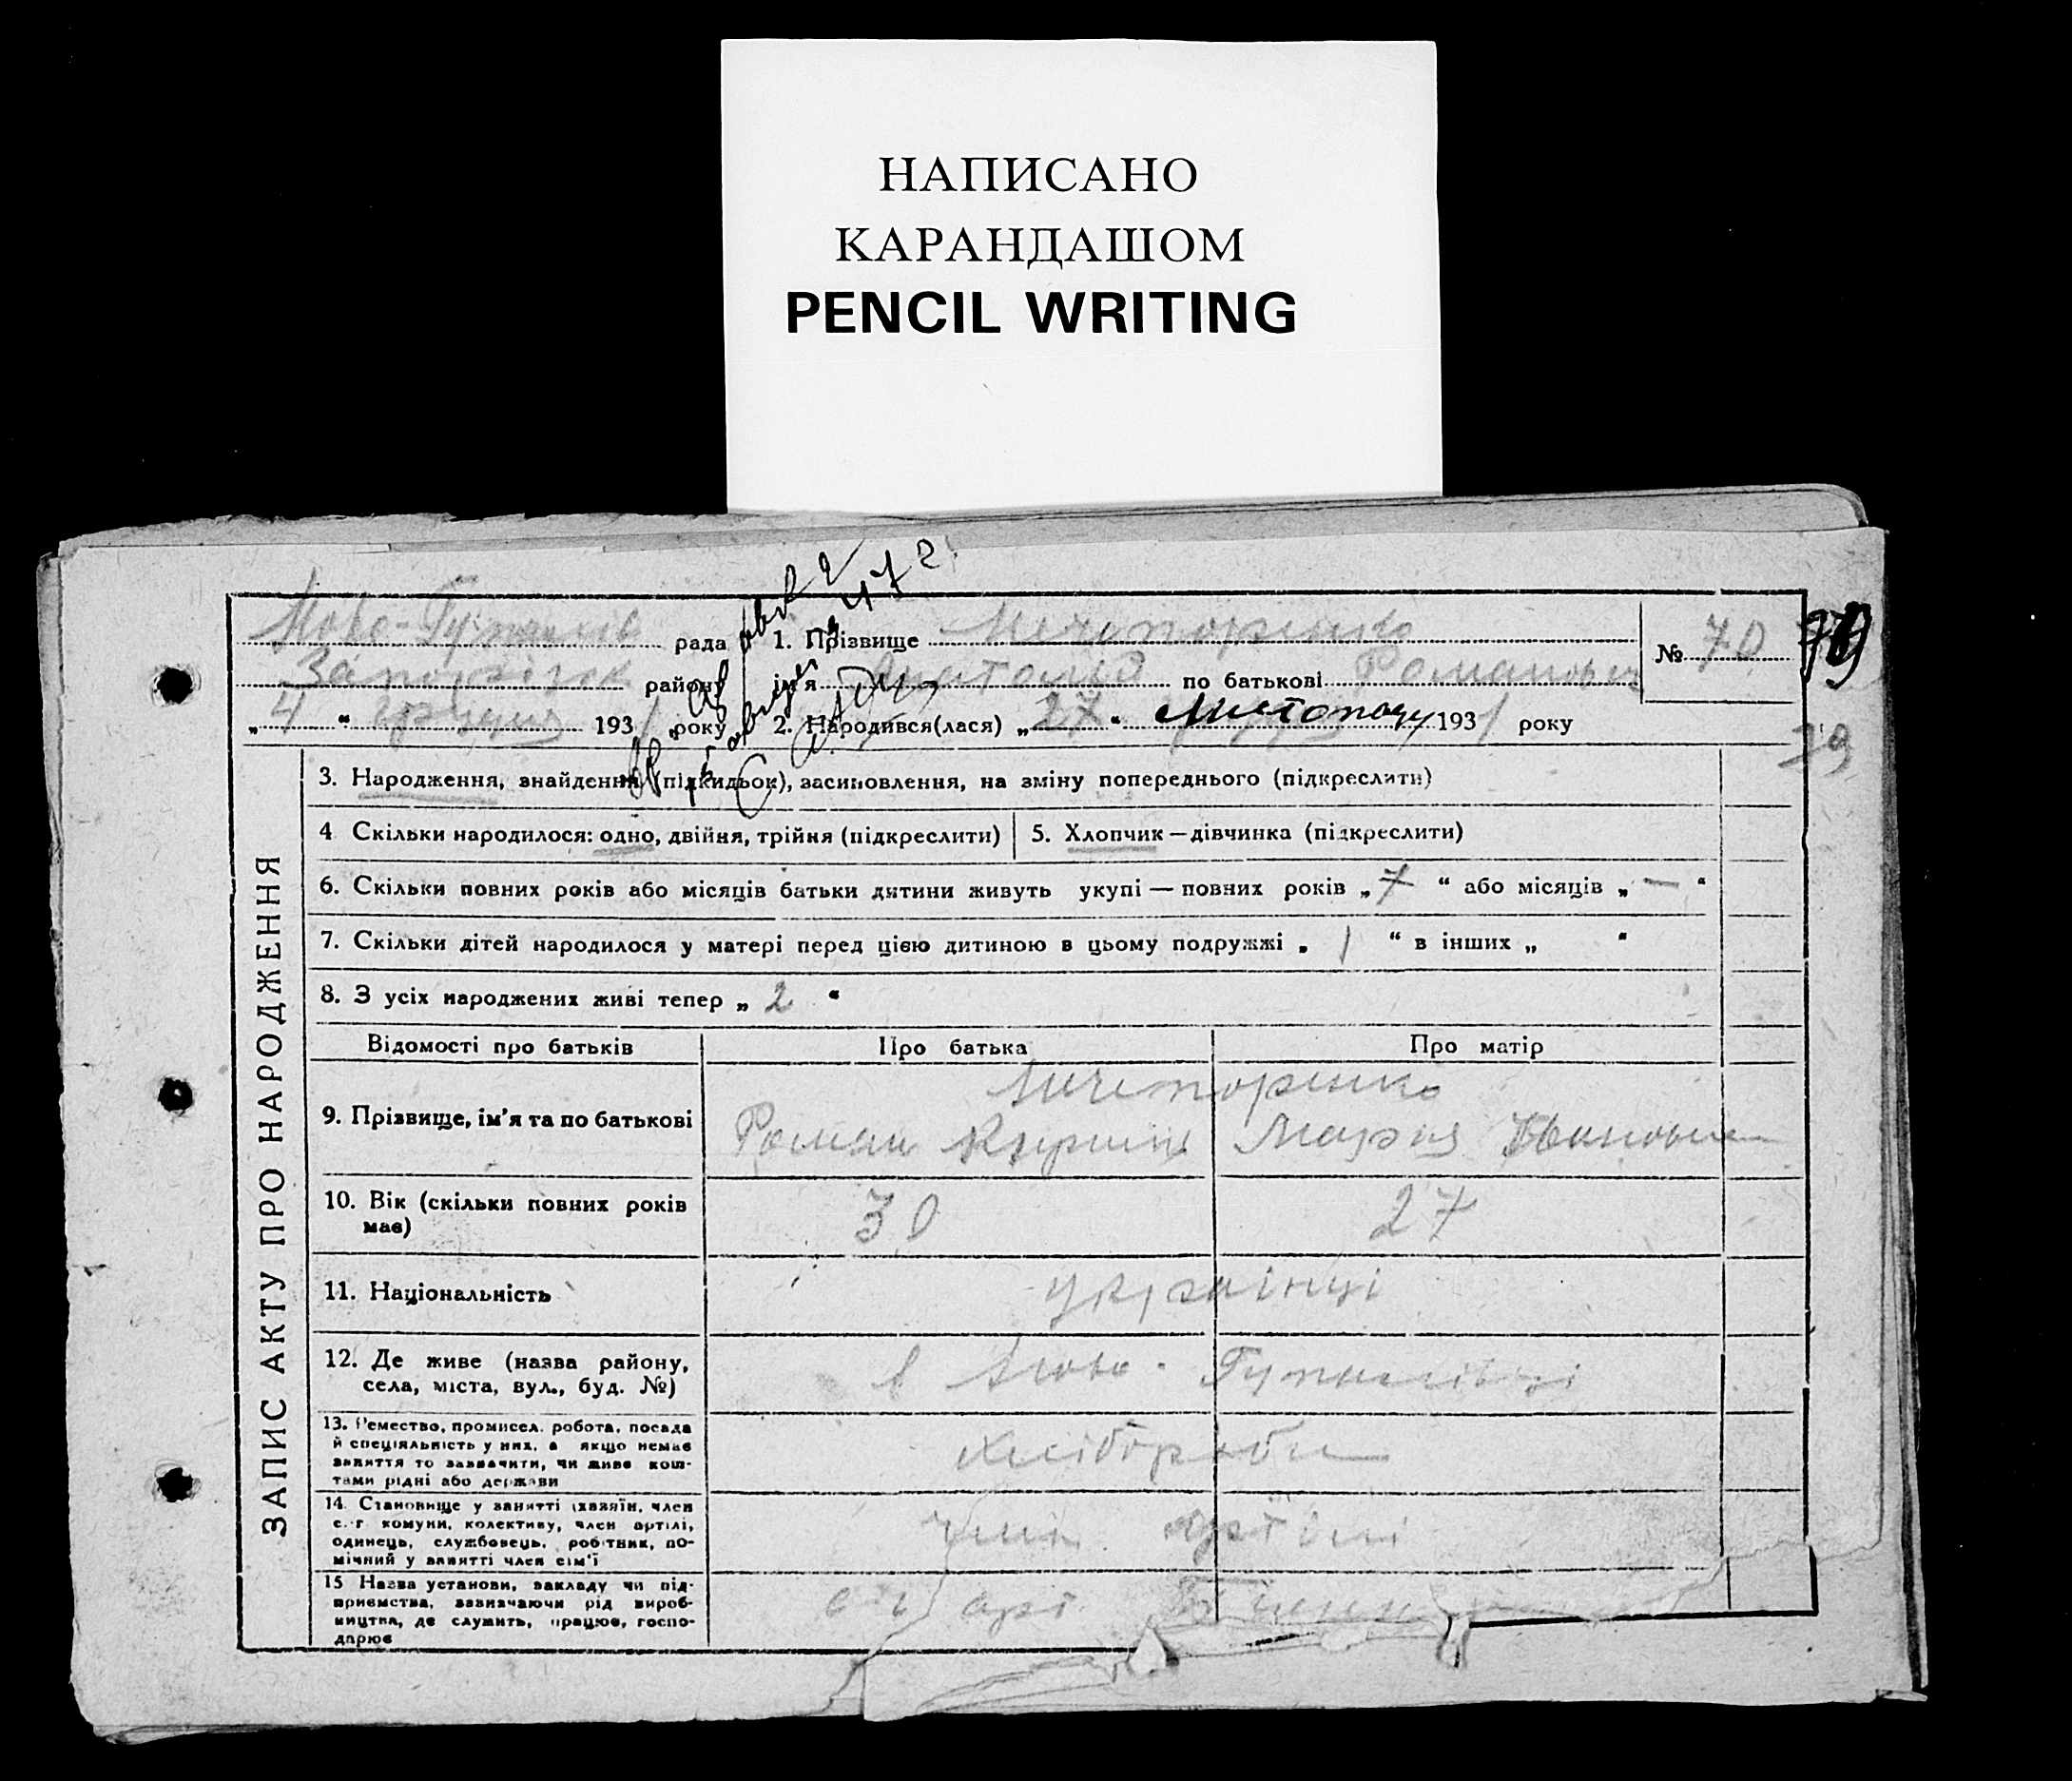 НАПИСАНО
КАРАНДАШОМ
PENCIL WRITING
рада
району
„ 4 “ грудня 1931 року
1. Прізвище Нечипоренко
ім'я Анатолій по батькові Романович
2. Народився(лася) „ 27 “ Листопаду 1931 року
№ 70
79
ЗАПИС АКТУ ПРО НАРОДЖЕННЯ
3. Народження, знайдення (підкидьок), засиновлення, на зміну попереднього (підкреслити)
4 Скільки народилося: одно, двійня, трійня (підкреслити)
5. Хлопчик — дівчинка (підкреслити)
6. Скільки повних років або місяців батьки дитини живуть укупі — повних років „ 7 “ або місяців „ — “
7. Скільки дітей народилося у матері перед цією дитиною в цьому подружжі „ 1 “ в інших „ “
8. З усіх народжених живі тепер „ 2 “
Відомості про батьків
Про батька
Про матір
9. Прізвище, ім'я та по батькові
Нечипоренко
Роман
Мария Ивановна
10. Вік (скільки повних років
має)
30
27
11. Національність
українці
12. Де живе (назва району,
села, міста, вул., буд. №)
в Ново-Гупалівці
13. Ремество, промисел, робота, посада
й спеціяльність у них, а якщо немає
заняття то зазначити, чи живе кош-
тами рідні або держави
Хлібороби
14. Становище у занятті (хазяїн, член
с.-г. комуни, колективу, член артілі,
одинець, службовець, робітник, по-
мічний у занятті член сім'ї
член артілі
15 Назва установи, закладу чи під-
приємства, зазначаючи рід вироб-
ництва, де служить, працює, госпо-
дарює
с г арт